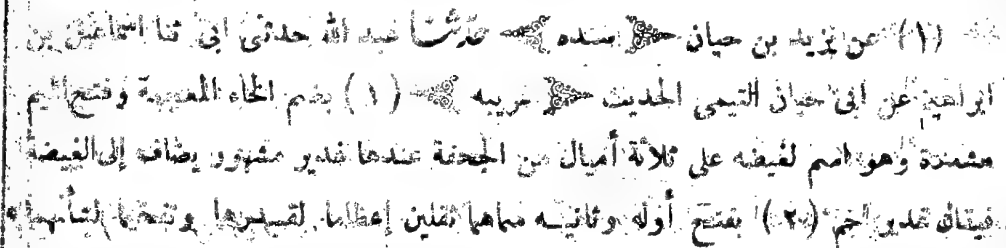 (١) عن يزيد بن حيان سنده حدثنا عبد الله حدثني ابي ثنا اسماعيل بن
ابراهيم عن ابي حيان التيمى الحديث غريبه (١) بضم الخاء المعجمة وفتح الميم
مشددة وهو اسم لغيضه على ثلاثة أميال من الجحفة عندها غدير مشهور يضاف إلى الغيضة
فيقال غدير خم (٢) بفتح أوله وثانيه سماهما ثقلين إعظاما لقدرهما وتفخيما لشأنهما